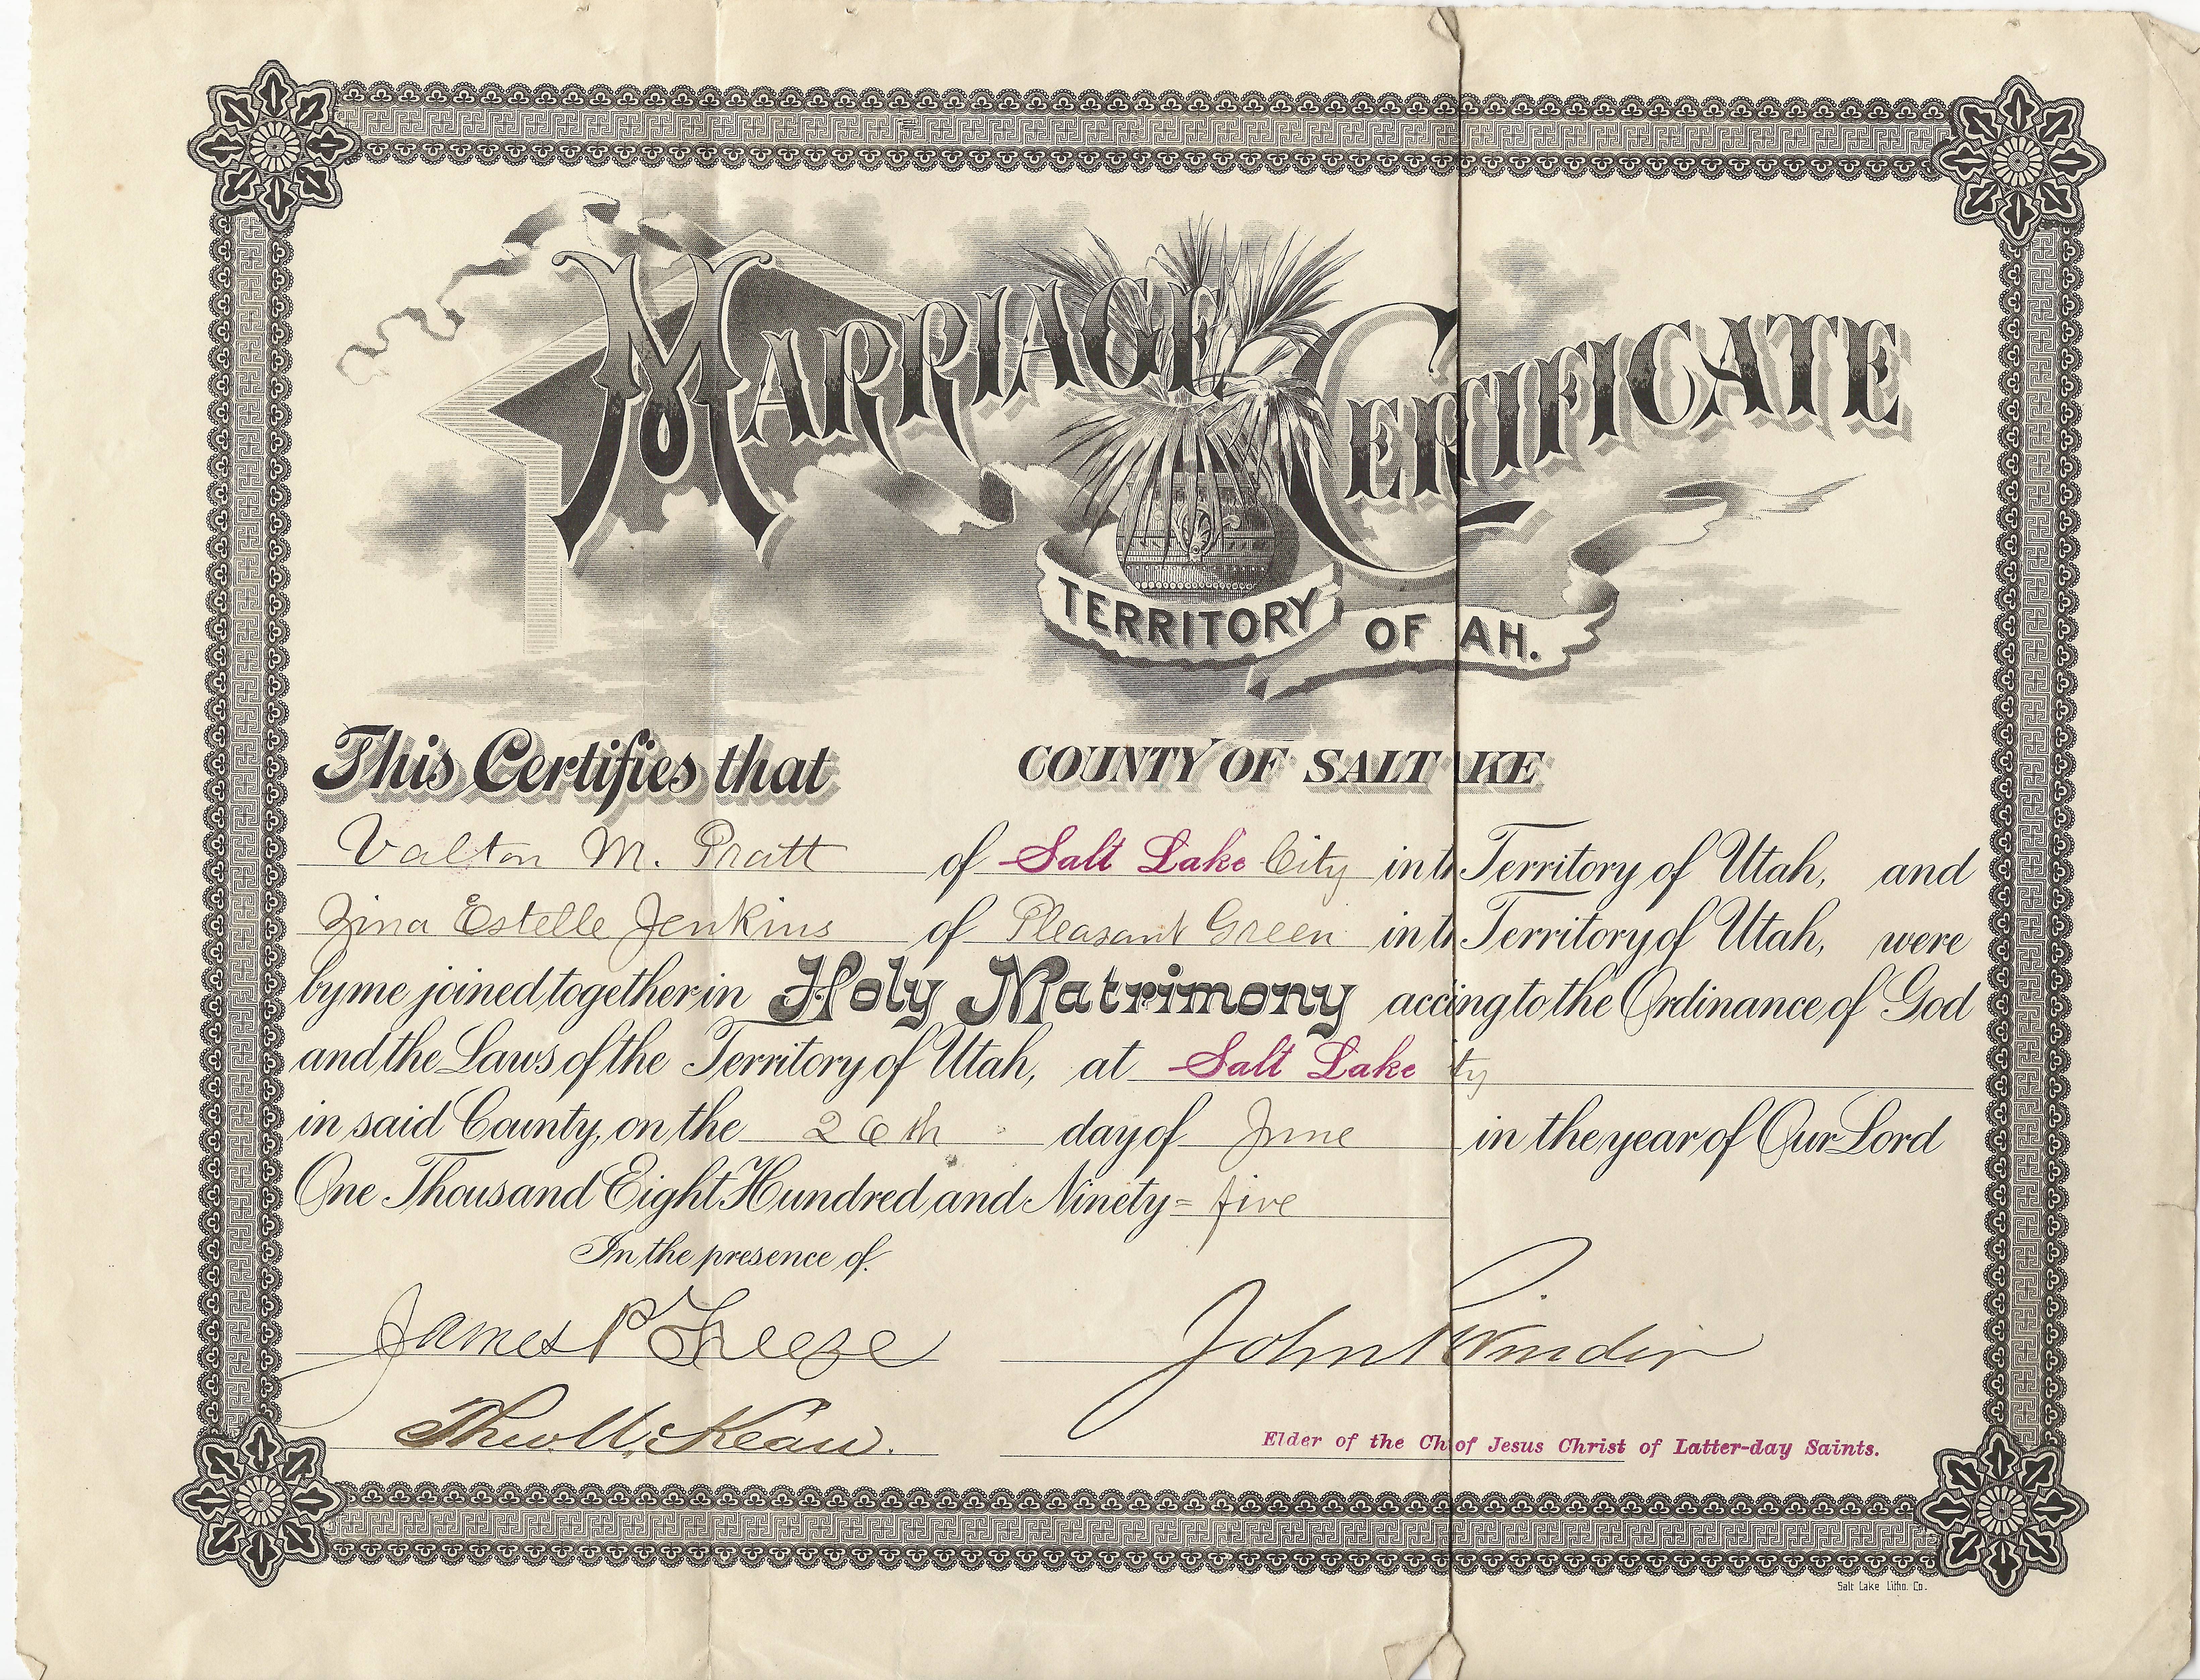 MARRIAGE CERTIFICATE
TERRITORY OF AH.
This Certifies that COUNTY OF SALT KE
Valton M. Pratt of Salt Lake City in t Territory of Utah, and
Zina Estelle Jenkins of Pleasant Green in t Territory of Utah, were
by me joined together in Holy Matrimony accing to the Ordinance of God
and the Laws of the Territory of Utah, at Salt Lake ty
in said County, on the 26th day of June in the year of Our Lord
One Thousand Eight Hundred and Ninety=five
In the presence of.
James P Freeze John R Winder
Theo McKean.
Elder of the Ch of Jesus Christ of Latter-day Saints.
Salt Lake Litho. Co.